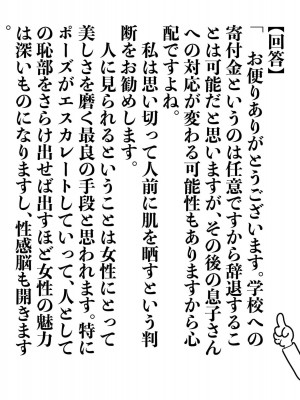 【回答】
「お便りありがとうございます。学校への
寄付金というのは任意ですから辞退するこ
とは可能だと思いますが、その後の息子さん
への対応が変わる可能性もありますから心
配ですよね。
私は思い切って人前に肌を晒すという判
断をお勧めします。
人に見られるということは女性にとって
美しさを磨く最良の手段と思われます。特に
ポーズがエスカレートしていって、人として
の恥部をさらけ出せば出すほど女性の魅力
は深いものになりますし、性感脳も開きます
。